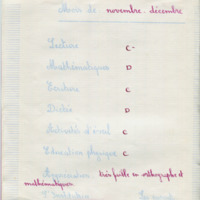 Mois de novembre. décembre
Lecture C-
Mathématiques D
Ecriture C
Dictée D
Activités d'éveil C
Education physique C
Appréciation très faible en orthographe et
mathématiques